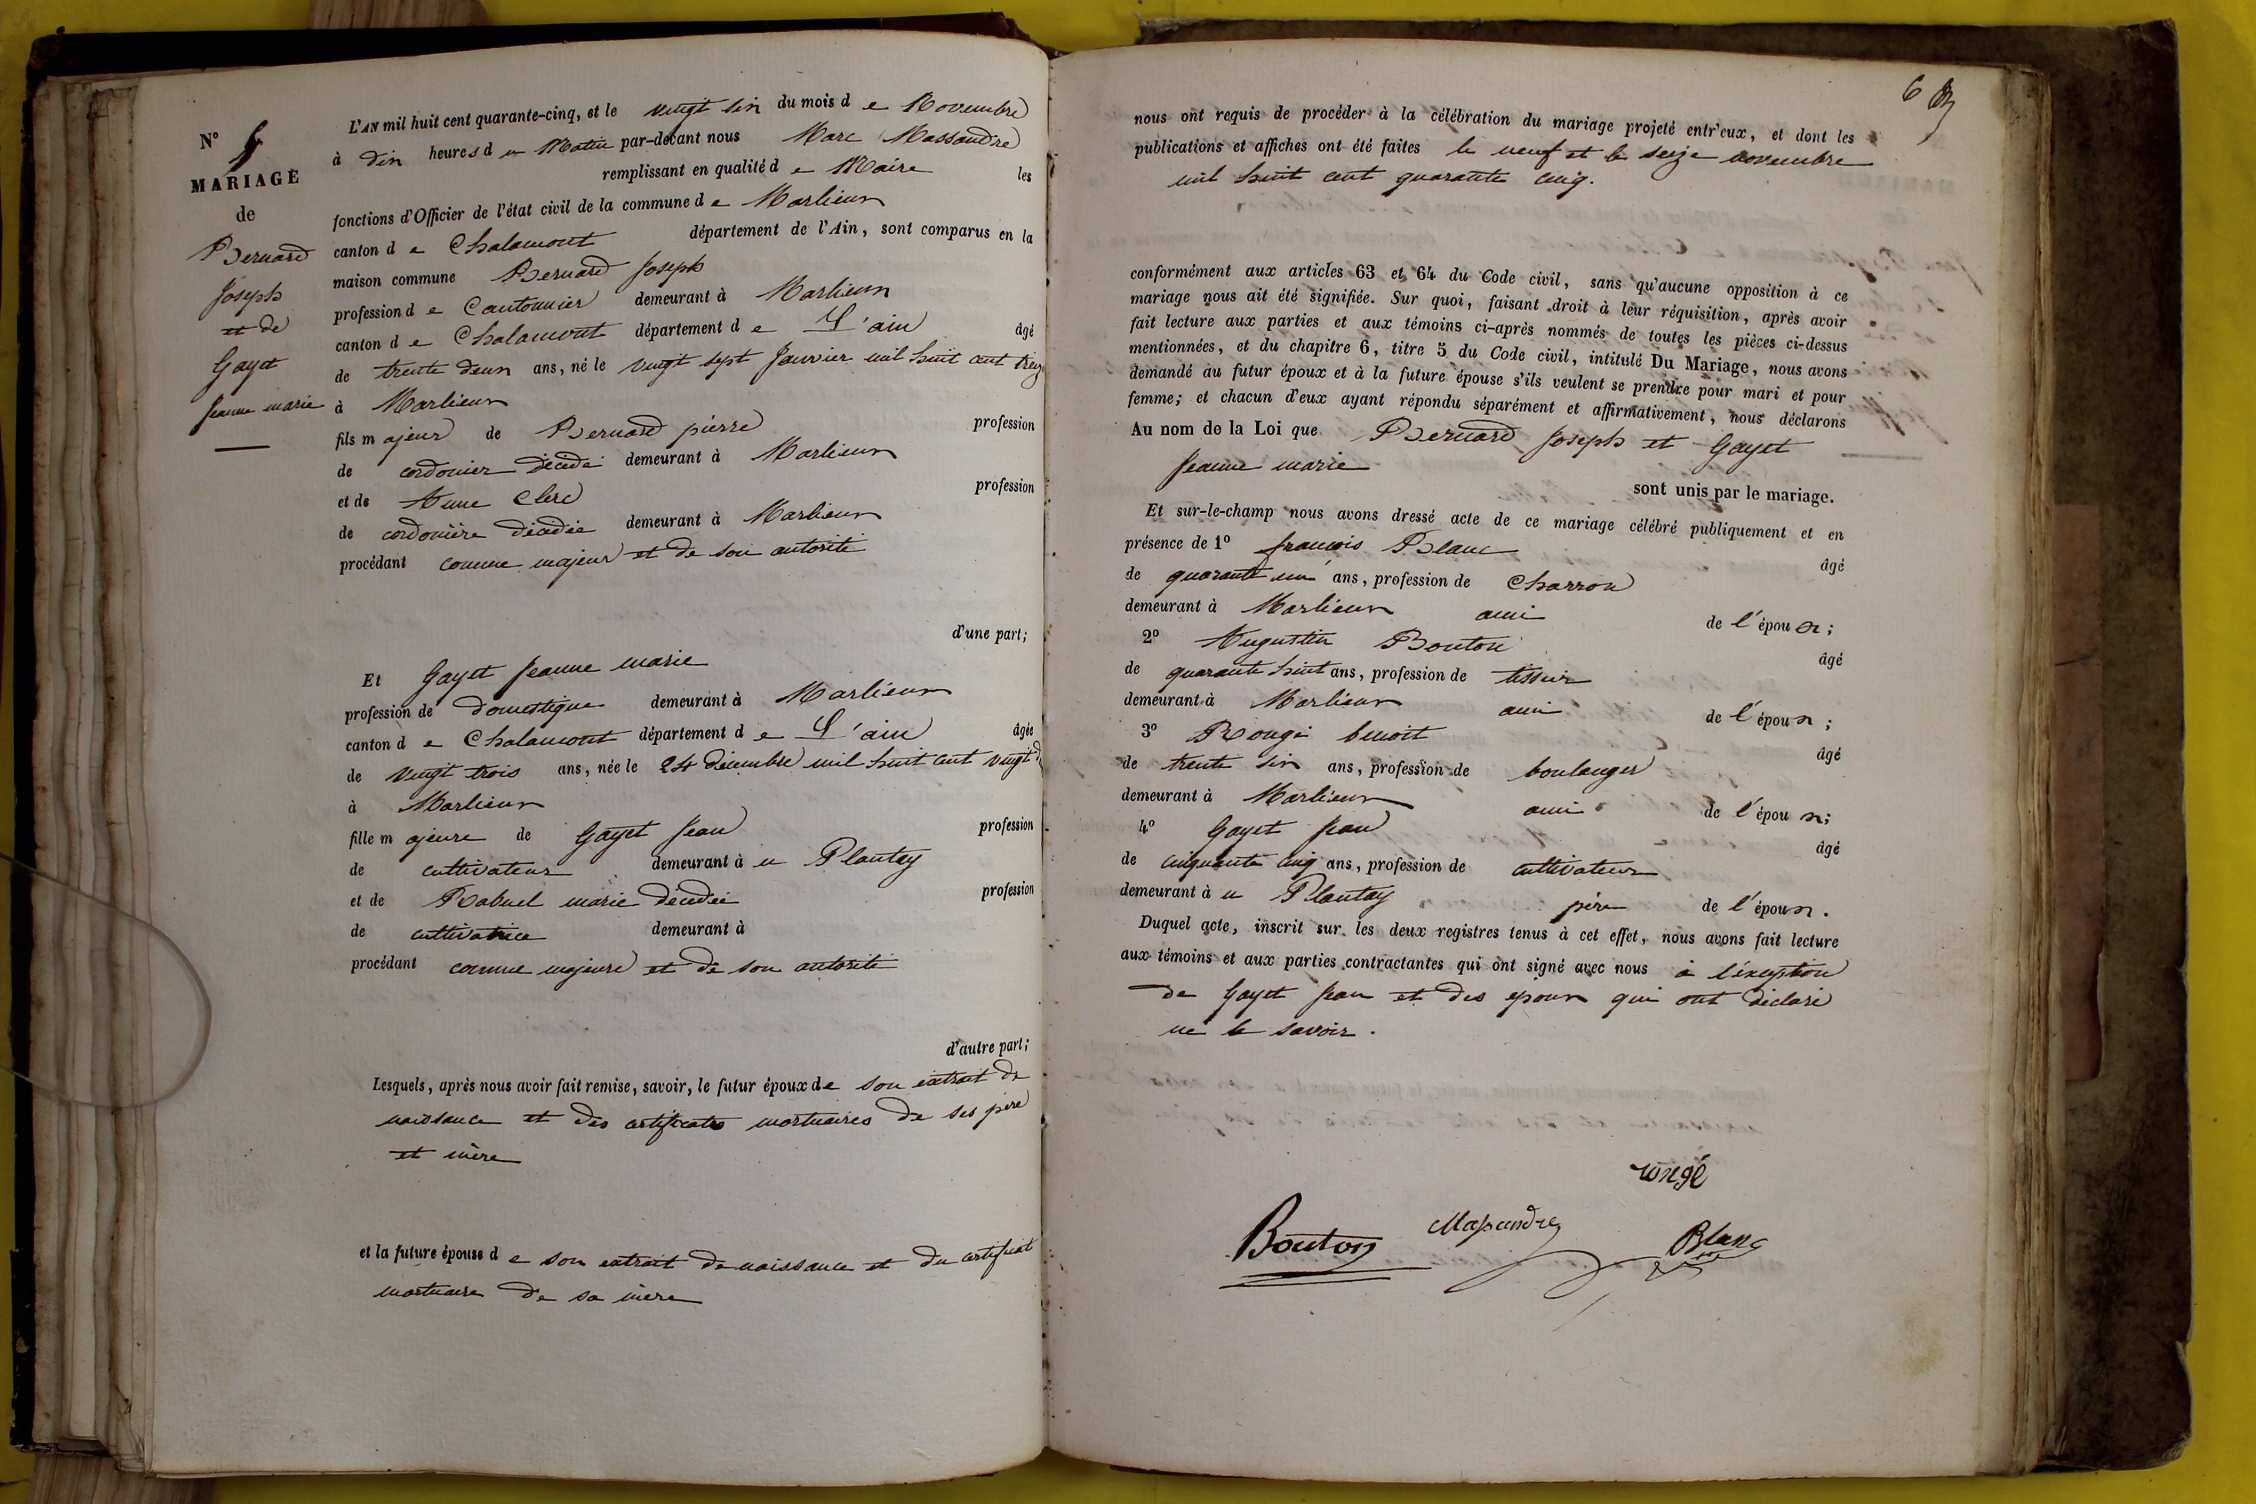 N°
MARIAGE
de
Bernard
Joseph
et de
Gayet
Jeanne marie
L'AN mil huit cent quarante-cinq, et le vingt six du mois d e Novembre
à dix heures d u Matin par-devant nous Marc Massandre
remplissant en qualité d e Maire les
fonctions d'Officier de l'état civil de la commune d e Marlieux
canton d e Chalamont département de l'Ain, sont comparus en la
maison commune Bernard Joseph
profession d e Cantonnier demeurant à Marlieux
canton d e Chalamont département d e L'ain âgé
de trente deux ans, né le vingt sept Janvier mil huit cent treize
à Marlieux
fils m ajeur de Bernard pierre profession
de cordonier décédé demeurant à Marlieux
et de Anne Clerc profession
de cordonière décédée demeurant à Marlieux
procédant comme majeur et de son autorité
d'une part;
Et Gayet Jeanne marie
profession de domestique demeurant à Marlieux
canton d e Chalamont département d e L'ain âgée
de vingt trois ans, née le 24 décembre mil huit cent vingt
à Marlieux
fille m ajeure de Gayet Jean profession
de cultivateur demeurant à u Plantay
et de Rabuel marie décédée profession
de cultivatrice demeurant à
procédant comme majeure et de son autorité
d'autre part;
Lesquels, après nous avoir fait remise, savoir, le futur époux de son extrait de
naissance et des certificats mortuaires de ses père
et mère
et la future épouse d e son extrait de naissance et du certificat
mortuaire de sa mère
6
nous ont requis de procéder à la célébration du mariage projeté entr'eux, et dont les
publications et affiches ont été faites le neuf et le seize novembre
mil huit cent quarante cinq.
conformément aux articles 63 et 64 du Code civil, sans qu'aucune opposition à ce
mariage nous ait été signifiée. Sur quoi, faisant droit à leur réquisition, après avoir
fait lecture aux parties et aux témoins ci-après nommés de toutes les pièces ci-dessus
mentionnées, et du chapitre 6, titre 5 du Code civil, intitulé Du Mariage, nous avons
demandé au futur époux et à la future épouse s'ils veulent se prendre pour mari et pour
femme; et chacun d'eux ayant répondu séparément et affirmativement, nous déclarons
Au nom de la Loi que Bernard Joseph et Gayet
Jeanne marie
sont unis par le mariage.
Et sur-le-champ nous avons dressé acte de ce mariage célébré publiquement et en
présence de 1° francois Blanc
âgé
de quarante un ans, profession de Charron
demeurant à Marlieux ami de l'époux;
2° Augustin Bouton
âgé
de quarante huit ans, profession de tissier
demeurant à Marlieux ami de l'époux;
3° Rongé benoit
âgé
de trente six ans, profession de boulanger
demeurant à Marlieux ami de l'époux;
4° Gayet Jean
âgé
de cinquante cinq ans, profession de cultivateur
demeurant à u Plantay père de l'époux.
Duquel acte, inscrit sur les deux registres tenus à cet effet, nous avons fait lecture
aux témoins et aux parties contractantes qui ont signé avec nous à l'exception
de Gayet Jean et des époux qui ont déclaré
ne le savoir.
rongé
Bouton Massandre Blanc